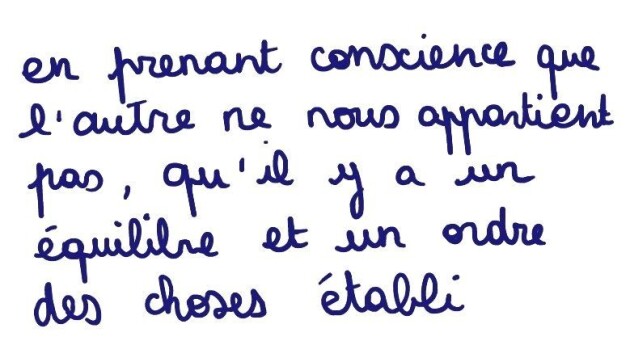 en prenant conscience que
l'autre ne nous appartient
pas, qu'il y a un
équilibre et un ordre
des choses établi